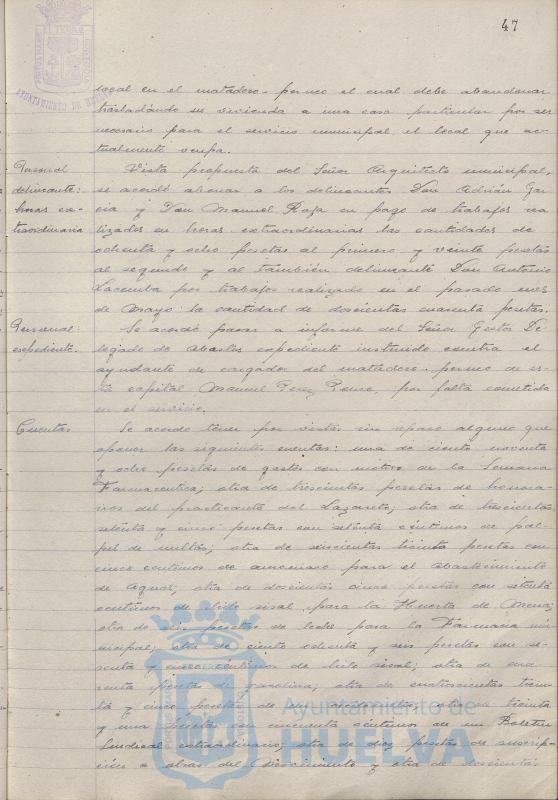 47
AYUNTAMIENTO DE HUELVA
local en el matadero-porcuno el cual debe abandonar
trasladándo su vivienda a una casa particular por ser
necesario para el servicio municipal el local que ac-
tualmente ocupa.
Personal
delineante:
horas ex-
traordinarias
Vista propuesta del Señor Arquitecto municipal,
se acordó abonar a los delineantes Don Adrián Gar-
cia y Don Manuel Rofa en pago de trabajos rea-
lizados en horas extraordinarias las cantidades de
ochenta y ocho pesetas al primero y veinte pesetas
al segundo y al también delineante Don Antonio
Lacemba por trabajos realizado en el pasado mes
de Mayo la cantidad de doscientas cuarenta pesetas.
Personal
expediente.
Se acordó pasar a informe del Señor Gestor De-
legado de Abastos expediente instruido contra el
ayudante de cargador del matadero-porcuno de es-
ta capital Manuel Perez Ponce, por falta cometida
en el servicio.
Cuentas
Se acordo tener por vistas sin reparo alguno que
oponer las siguientes cuentas: una de ciento noventa
y ocho pesetas de gastos con motivo de la Semana
Farmaceutica; otra de trescientas pesetas de honora-
rios del practicante del Lazareto; otra de trescientas
setenta y cinco pesetas con setenta céntimos de pa-
pel de multas; otra de seiscientas treinta pesetas con
cinco centimos de amoniaco para el abastecimiento
de Aguas; otra de doscientas cinco pesetas con setenta
centimos de hilo sisal para la Huerta de Mena;
otra de seis pesetas de leche para la Farmacia mu-
nicipal; otra de ciento ochenta y seis pesetas con se-
senta y cinco céntimos de hilo sisal; otra de cua-
renta pesetas de gasolina; otra de cuatrocientas trein-
ta y cinco pesetas de otra de treinta
y una pesetas con cincuenta centimos de un Boletin
Sindical extraordinario; otra de diez pesetas de suscrip-
ción a obras del Movimiento y otra de doscientas
Ayuntamiento de
HUELVA